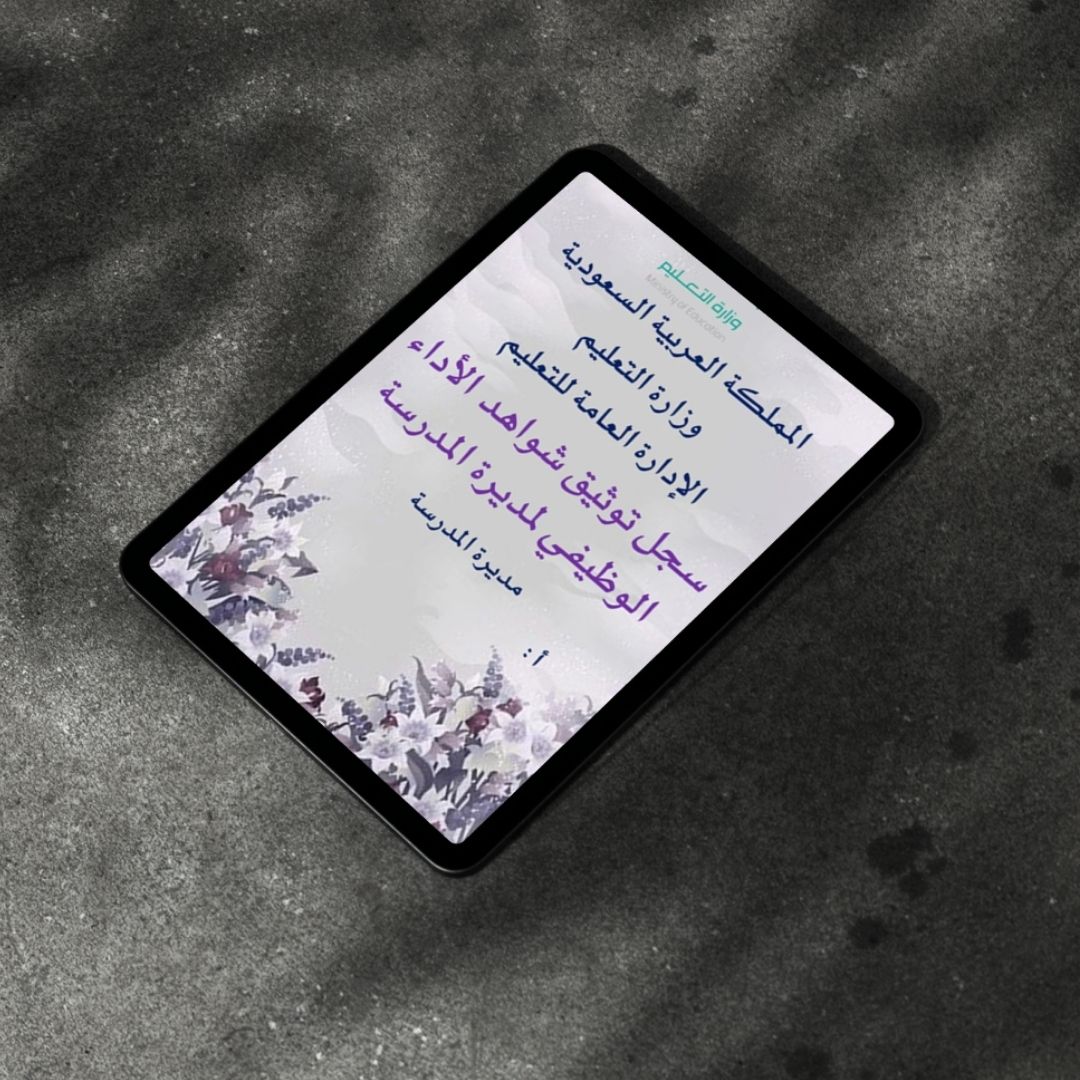 وزارة التعليم
Ministry of Education
المملكة العربية السعودية
وزارة التعليم
الإدارة العامة للتعليم
سجل توثيق شواهد الأداء
الوظيفي لمديرة المدرسة
مديرة المدرسة
أ :